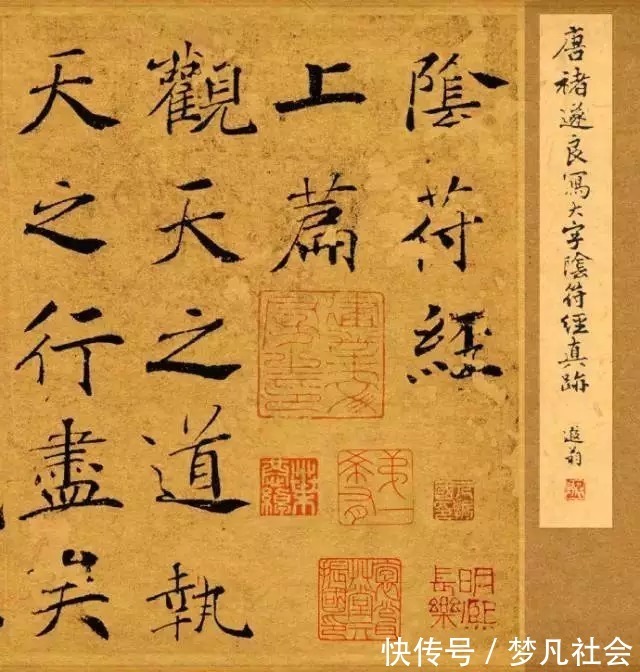 唐褚遂良寫大字陰符經真跡
陰符經
上篇
觀天之道執
天之行盡矣
明熙
長樂
快传号／梦凡社会